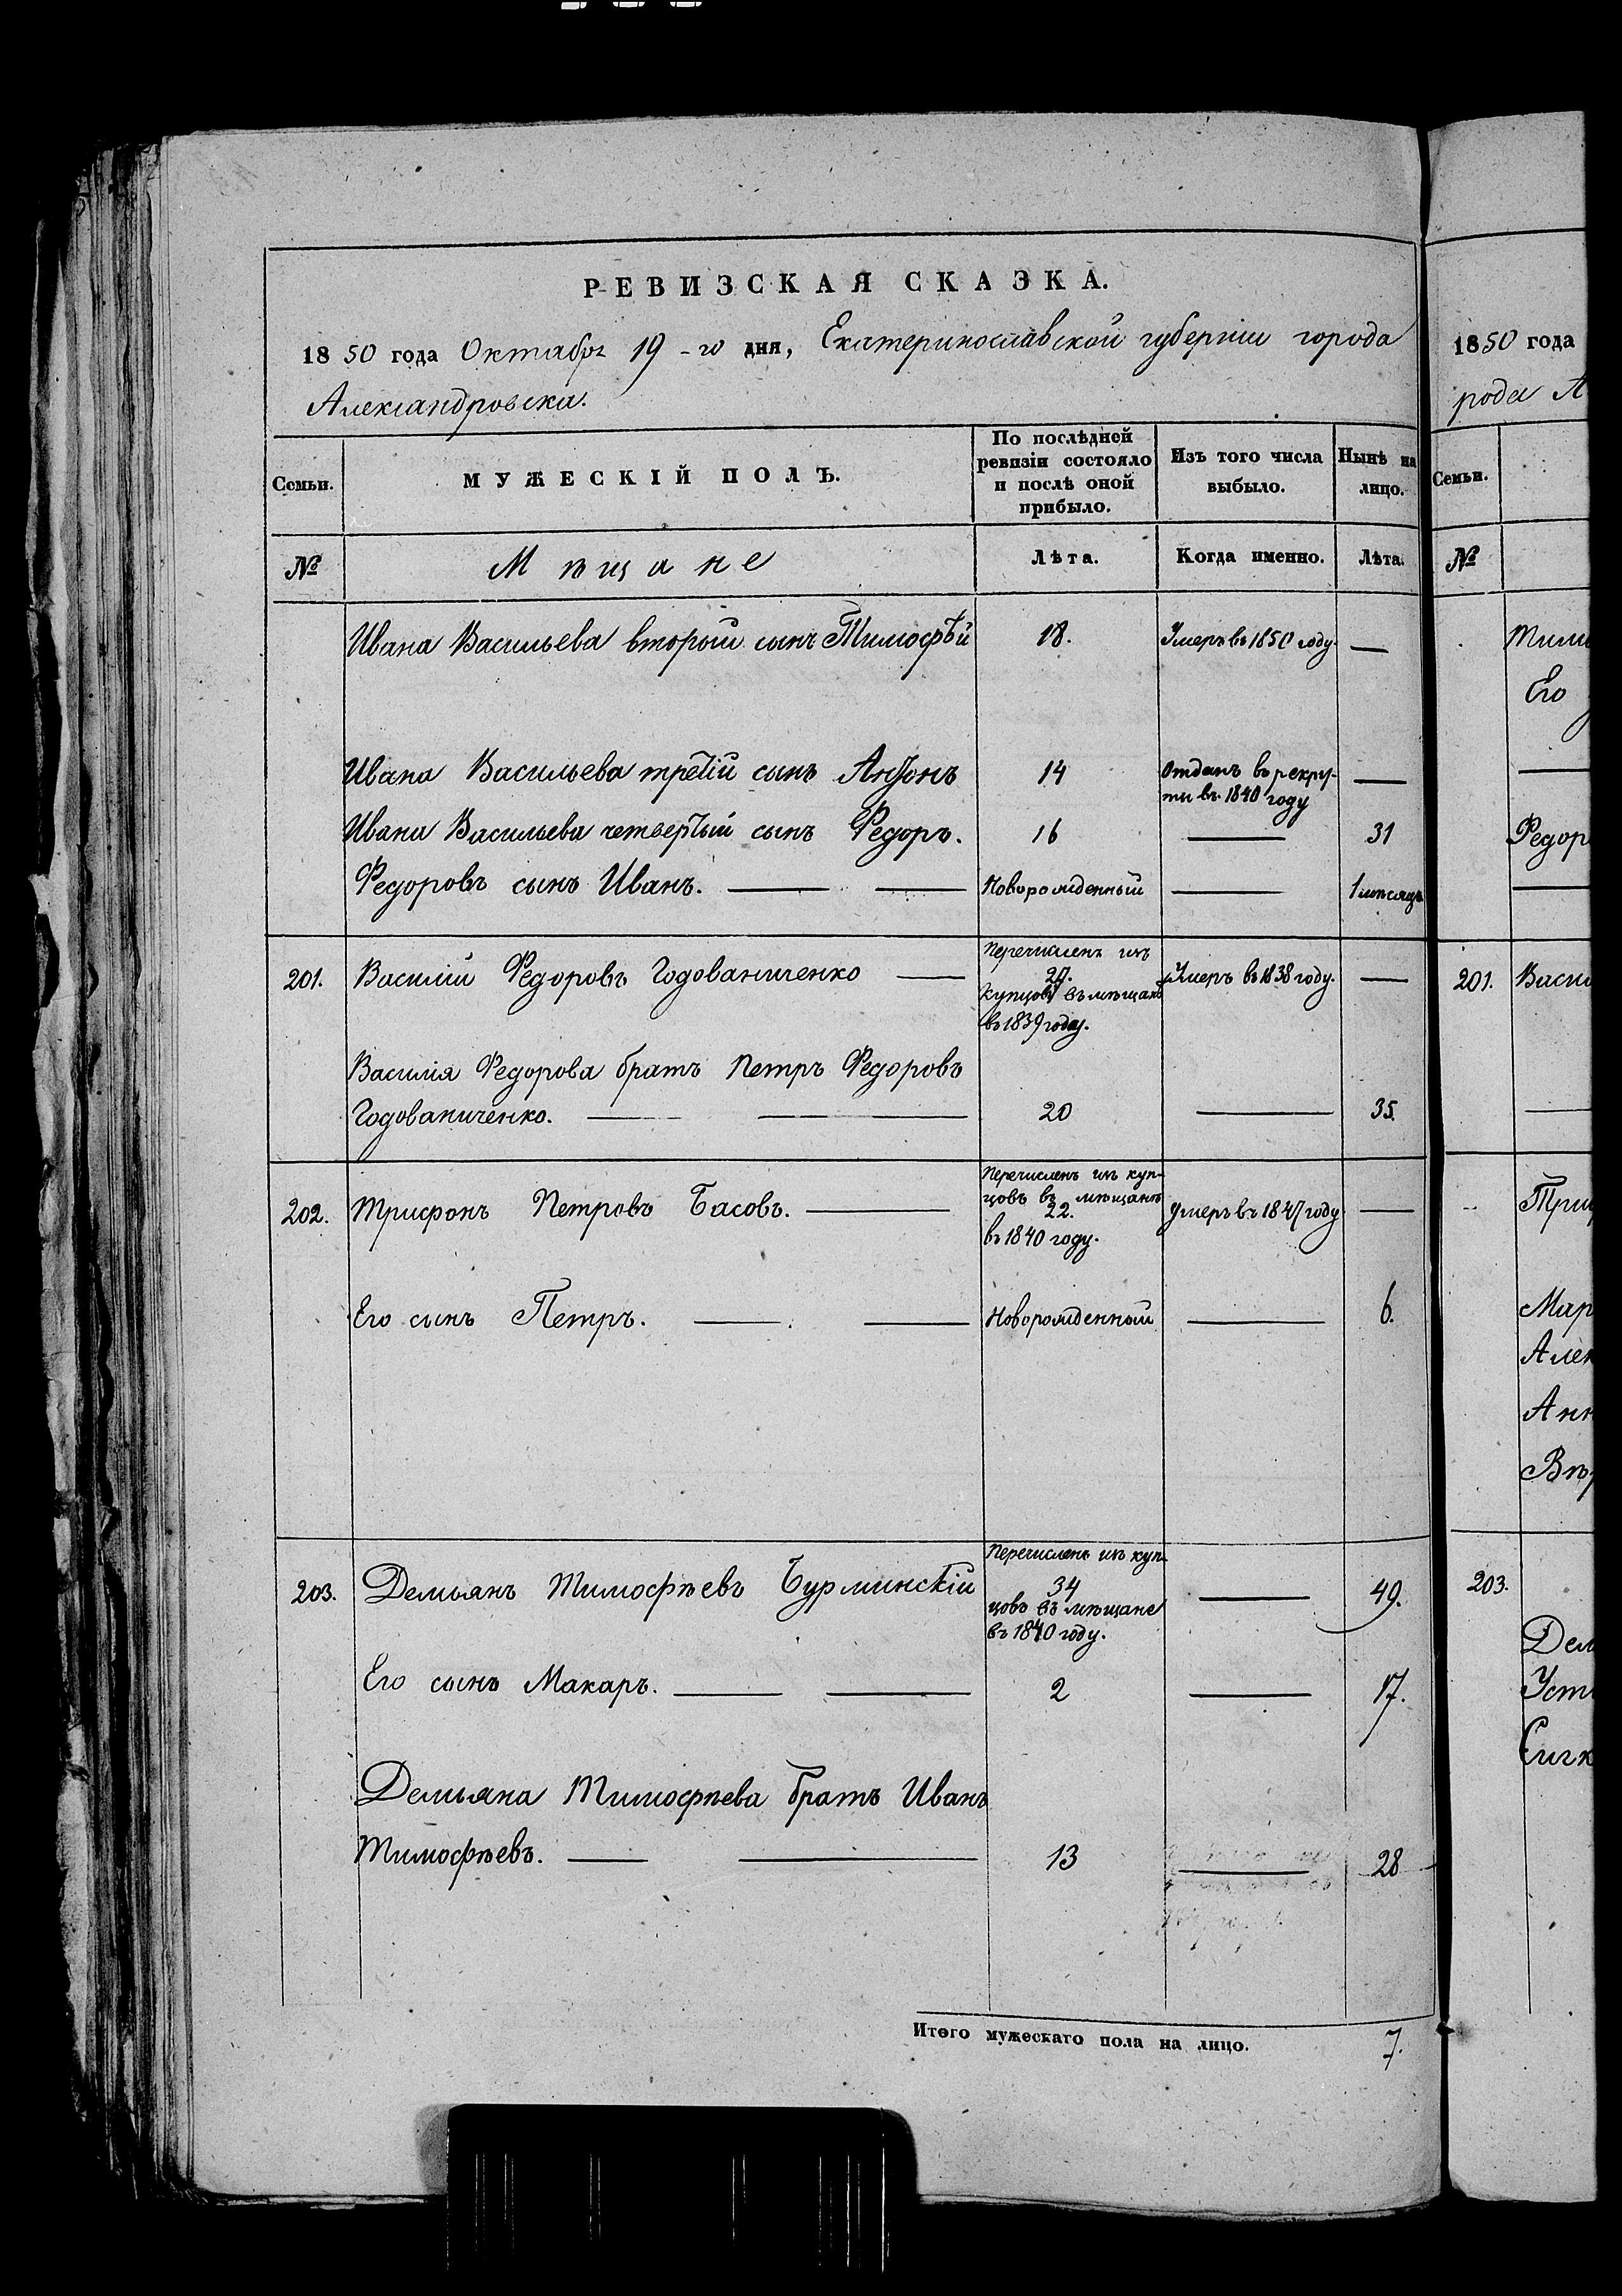 РЕВИЗСКАЯ СКАЗКА.
1850 года Октября 19-го дня, Екатеринославской губерніи города
Александровска.
Семьи.
МУЖЕСКІЙ ПОЛЪ.
По послѣдней
ревизіи состояло
и послѣ оной
прибыло.
Изъ того числа
выбыло.
Нынѣ на
лицо.
№
Мѣщане
Лѣта.
Когда именно.
Лѣта.
Ивана Васильева второй сынъ Тимофѣй 18. Умеръ въ 1850 году. —
Ивана Васильева третій сынъ Антонъ 14 Отданъ въ рекру- —
ты въ 1840 году
Ивана Васильева четвертый сынъ Федоръ. 16 — 31
Федоровъ сынъ Иванъ. — — Новорожденный — 1 мѣсяцъ
Перечисленъ изъ
201. Василій Федоровъ Годованиченко — 20. Умеръ въ 1838 году. —
купцовъ въ мѣщане
въ 1839 году.
Василія Федорова братъ Петръ Федоровъ
Годованиченко. — — 20 — 35.
Перечисленъ изъ куп-
цовъ въ мѣщане
202. Трифонъ Петровъ Басовъ. — 22. Умеръ въ 1847 году —
въ 1840 году.
Его сынъ Петръ. — — Новорожденный — 6.
Перечисленъ изъ куп-
203. Демьянъ Тимофѣевъ Бурминскій 34 — 49.
цовъ въ мѣщане
въ 1840 году.
Его сынъ Макаръ. — — 2 — 17.
Демьяна Тимофѣева братъ Иванъ
Тимофѣевъ. — — 13 — 28
Итого мужескаго пола на лицо. 7.
1850 года
рода А
Семьи.
№
Тимо
Его
Федор
201. Васи
Триф
Мар
Алек
Анн
Вѣр
203.
Дем
Уст